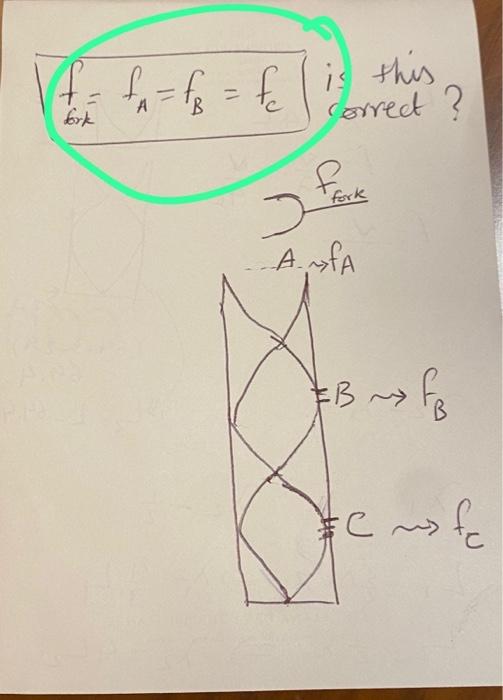 f_fork = f_A = f_B = f_C is this
correct ?
f_fork
A ⇝ f_A
B ⇝ f_B
C ⇝ f_C